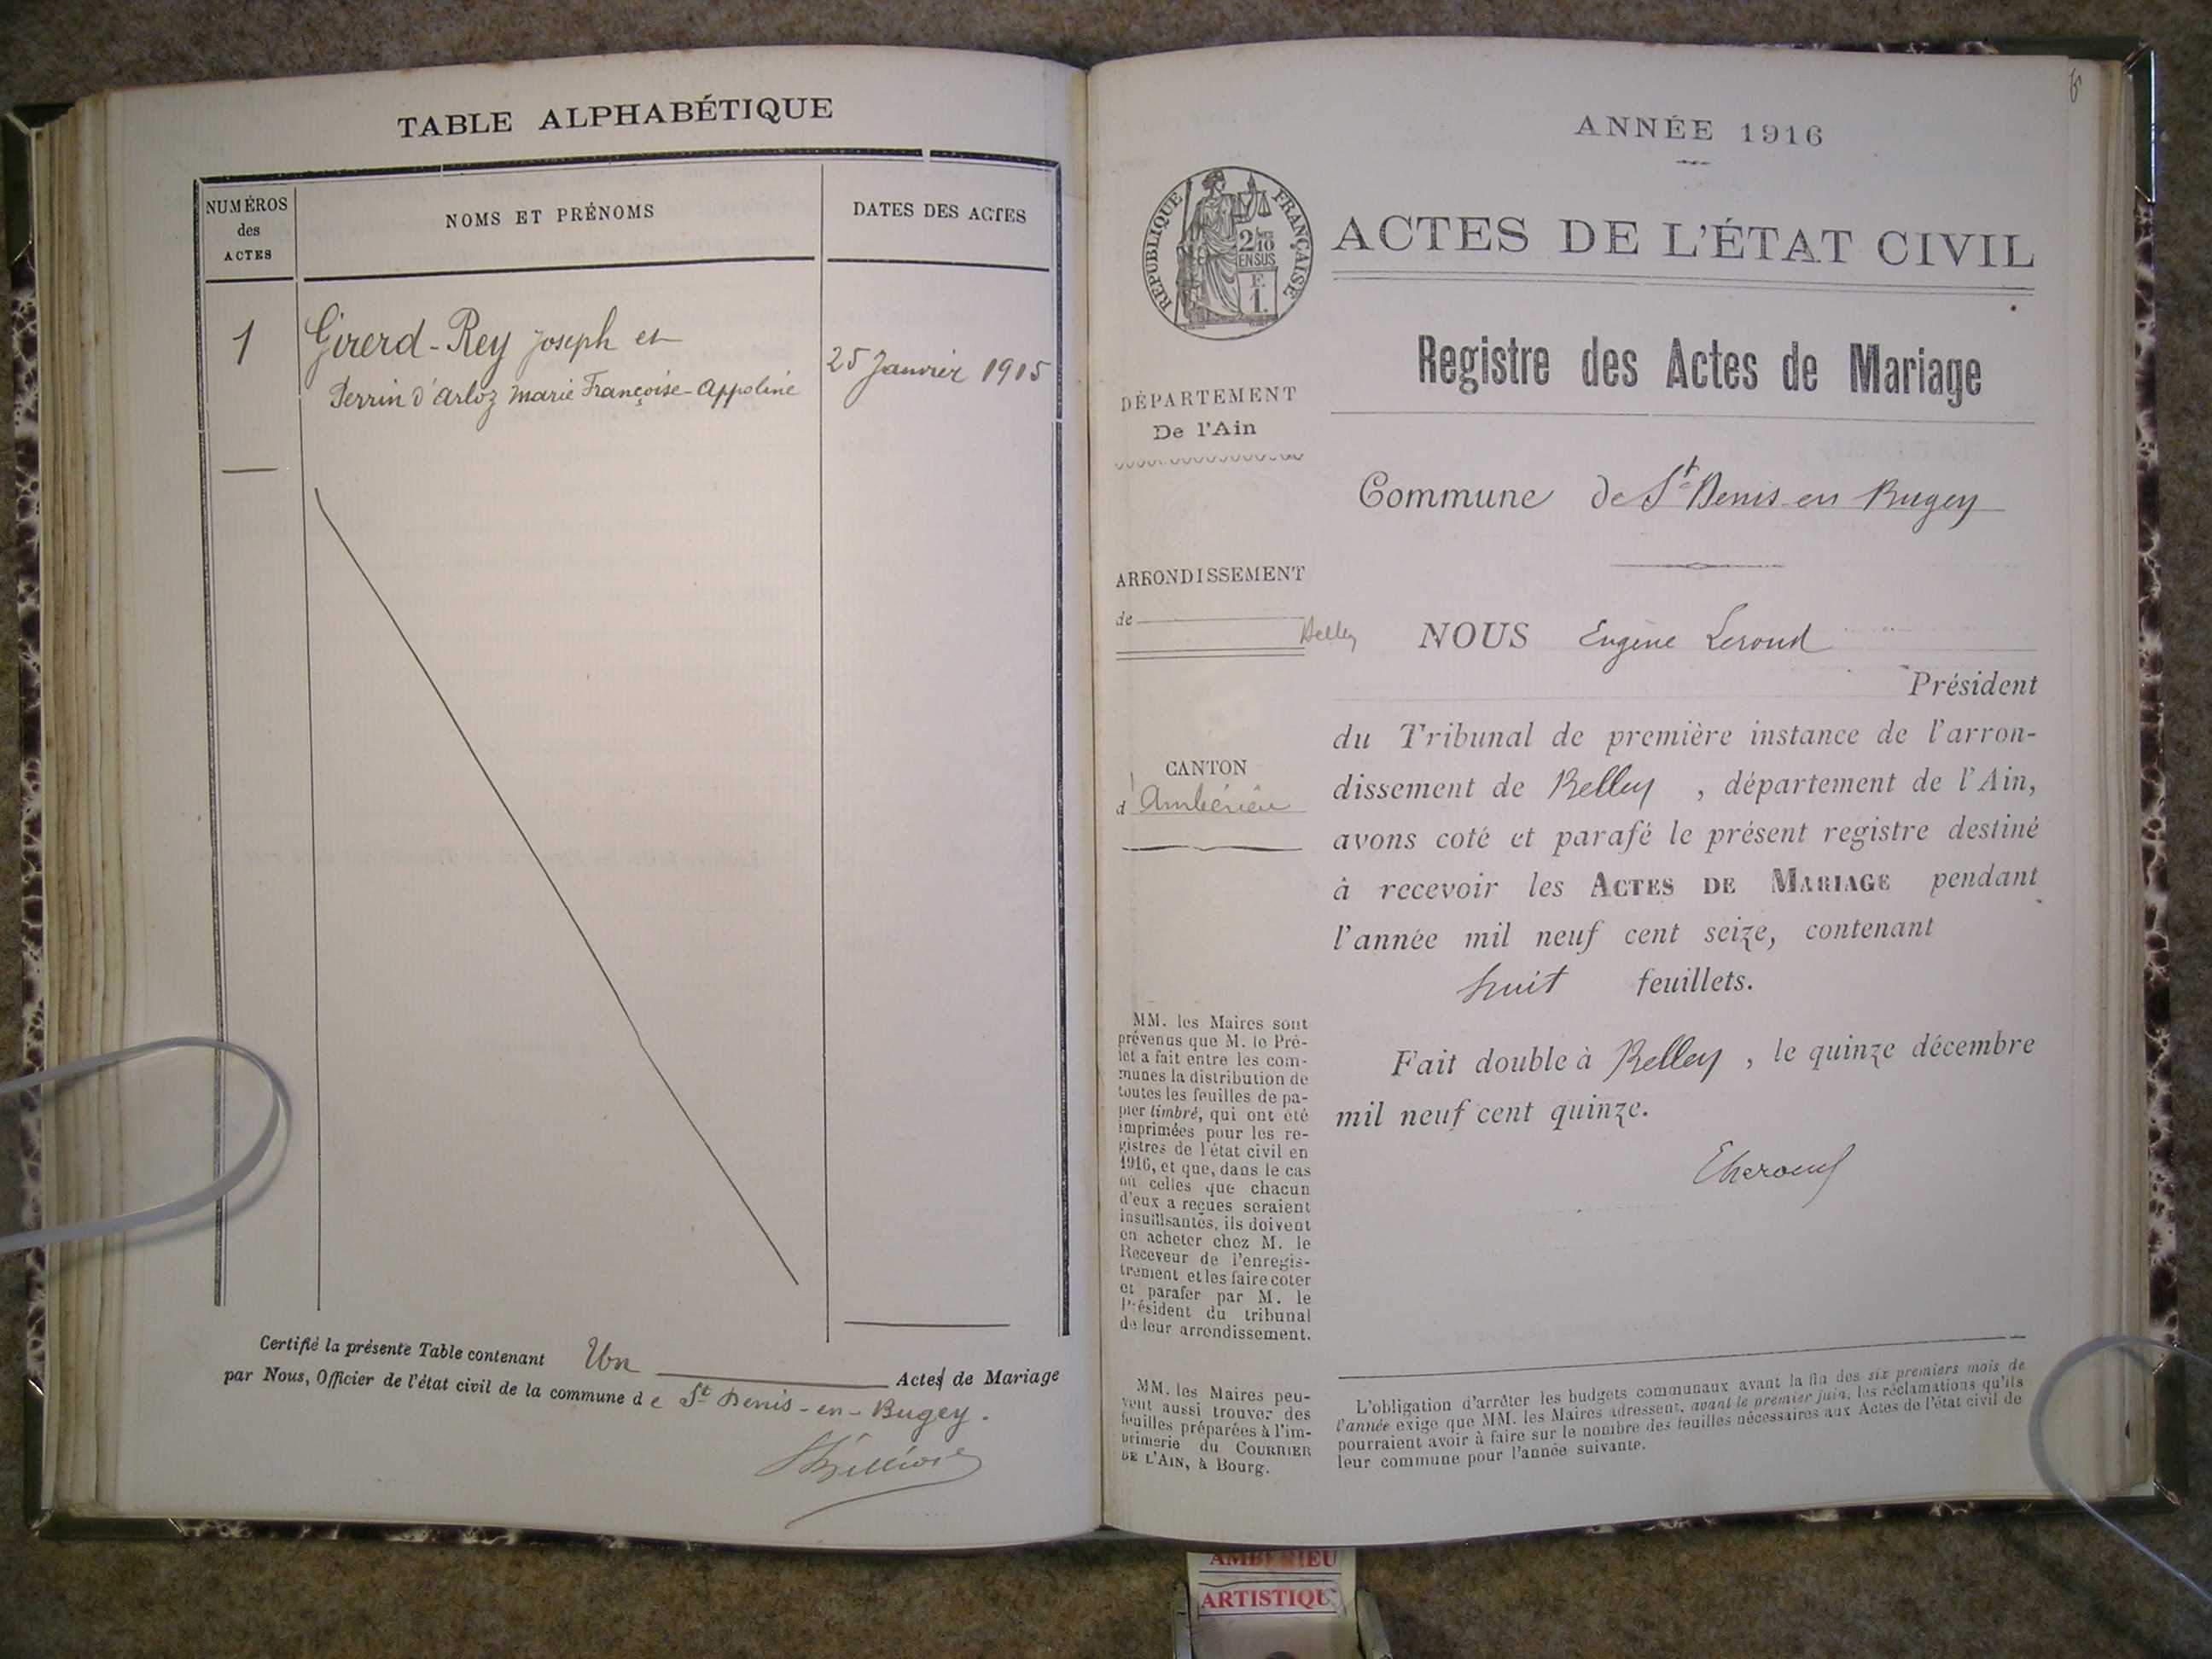 TABLE ALPHABÉTIQUE
NUMÉROS
des
ACTES
NOMS ET PRÉNOMS
DATES DES ACTES
1
Girerd-Rey Joseph et
Perrin d'Arloz Marie Françoise-Appoline
25 Janvier 1915
Certifié la présente Table contenant Un Actes de Mariage
par Nous, Officier de l'état civil de la commune de St Denis-en-Bugey.
ANNÉE 1916
RÉPUBLIQUE FRANÇAISE
2/10
EN SUS
F.
1.
ACTES DE L'ÉTAT CIVIL
Registre des Actes de Mariage
DÉPARTEMENT
De l'Ain
Commune de St Denis en Bugey
ARRONDISSEMENT
de Belley
NOUS Eugène Leroud
Président
du Tribunal de première instance de l'arron-
dissement de Belley, département de l'Ain,
avons coté et parafé le présent registre destiné
à recevoir les ACTES DE MARIAGE pendant
l'année mil neuf cent seize, contenant
huit feuillets.
Fait double à Belley, le quinze décembre
mil neuf cent quinze.
CANTON
d'Ambérieu
MM. les Maires sont
prévenus que M. le Pré-
fet a fait entre les com-
munes la distribution de
toutes les feuilles de pa-
pier timbré, qui ont été
imprimées pour les re-
gistres de l'état civil en
1916, et que, dans le cas
où celles que chacun
d'eux a reçues seraient
insuffisantes, ils doivent
en acheter chez M. le
Receveur de l'enregis-
trement et les faire coter
et parafer par M. le
Président du tribunal
de leur arrondissement.
MM. les Maires peu-
vent aussi trouver des
feuilles préparées à l'im-
primerie du COURRIER
DE L'AIN, à Bourg.
L'obligation d'arrêter les budgets communaux avant la fin des six premiers mois de
l'année exige que MM. les Maires adressent, avant le premier juin, les réclamations qu'ils
pourraient avoir à faire sur le nombre des feuilles nécessaires aux Actes de l'état civil de
leur commune pour l'année suivante.
AMBERIEU
ARTISTIQU